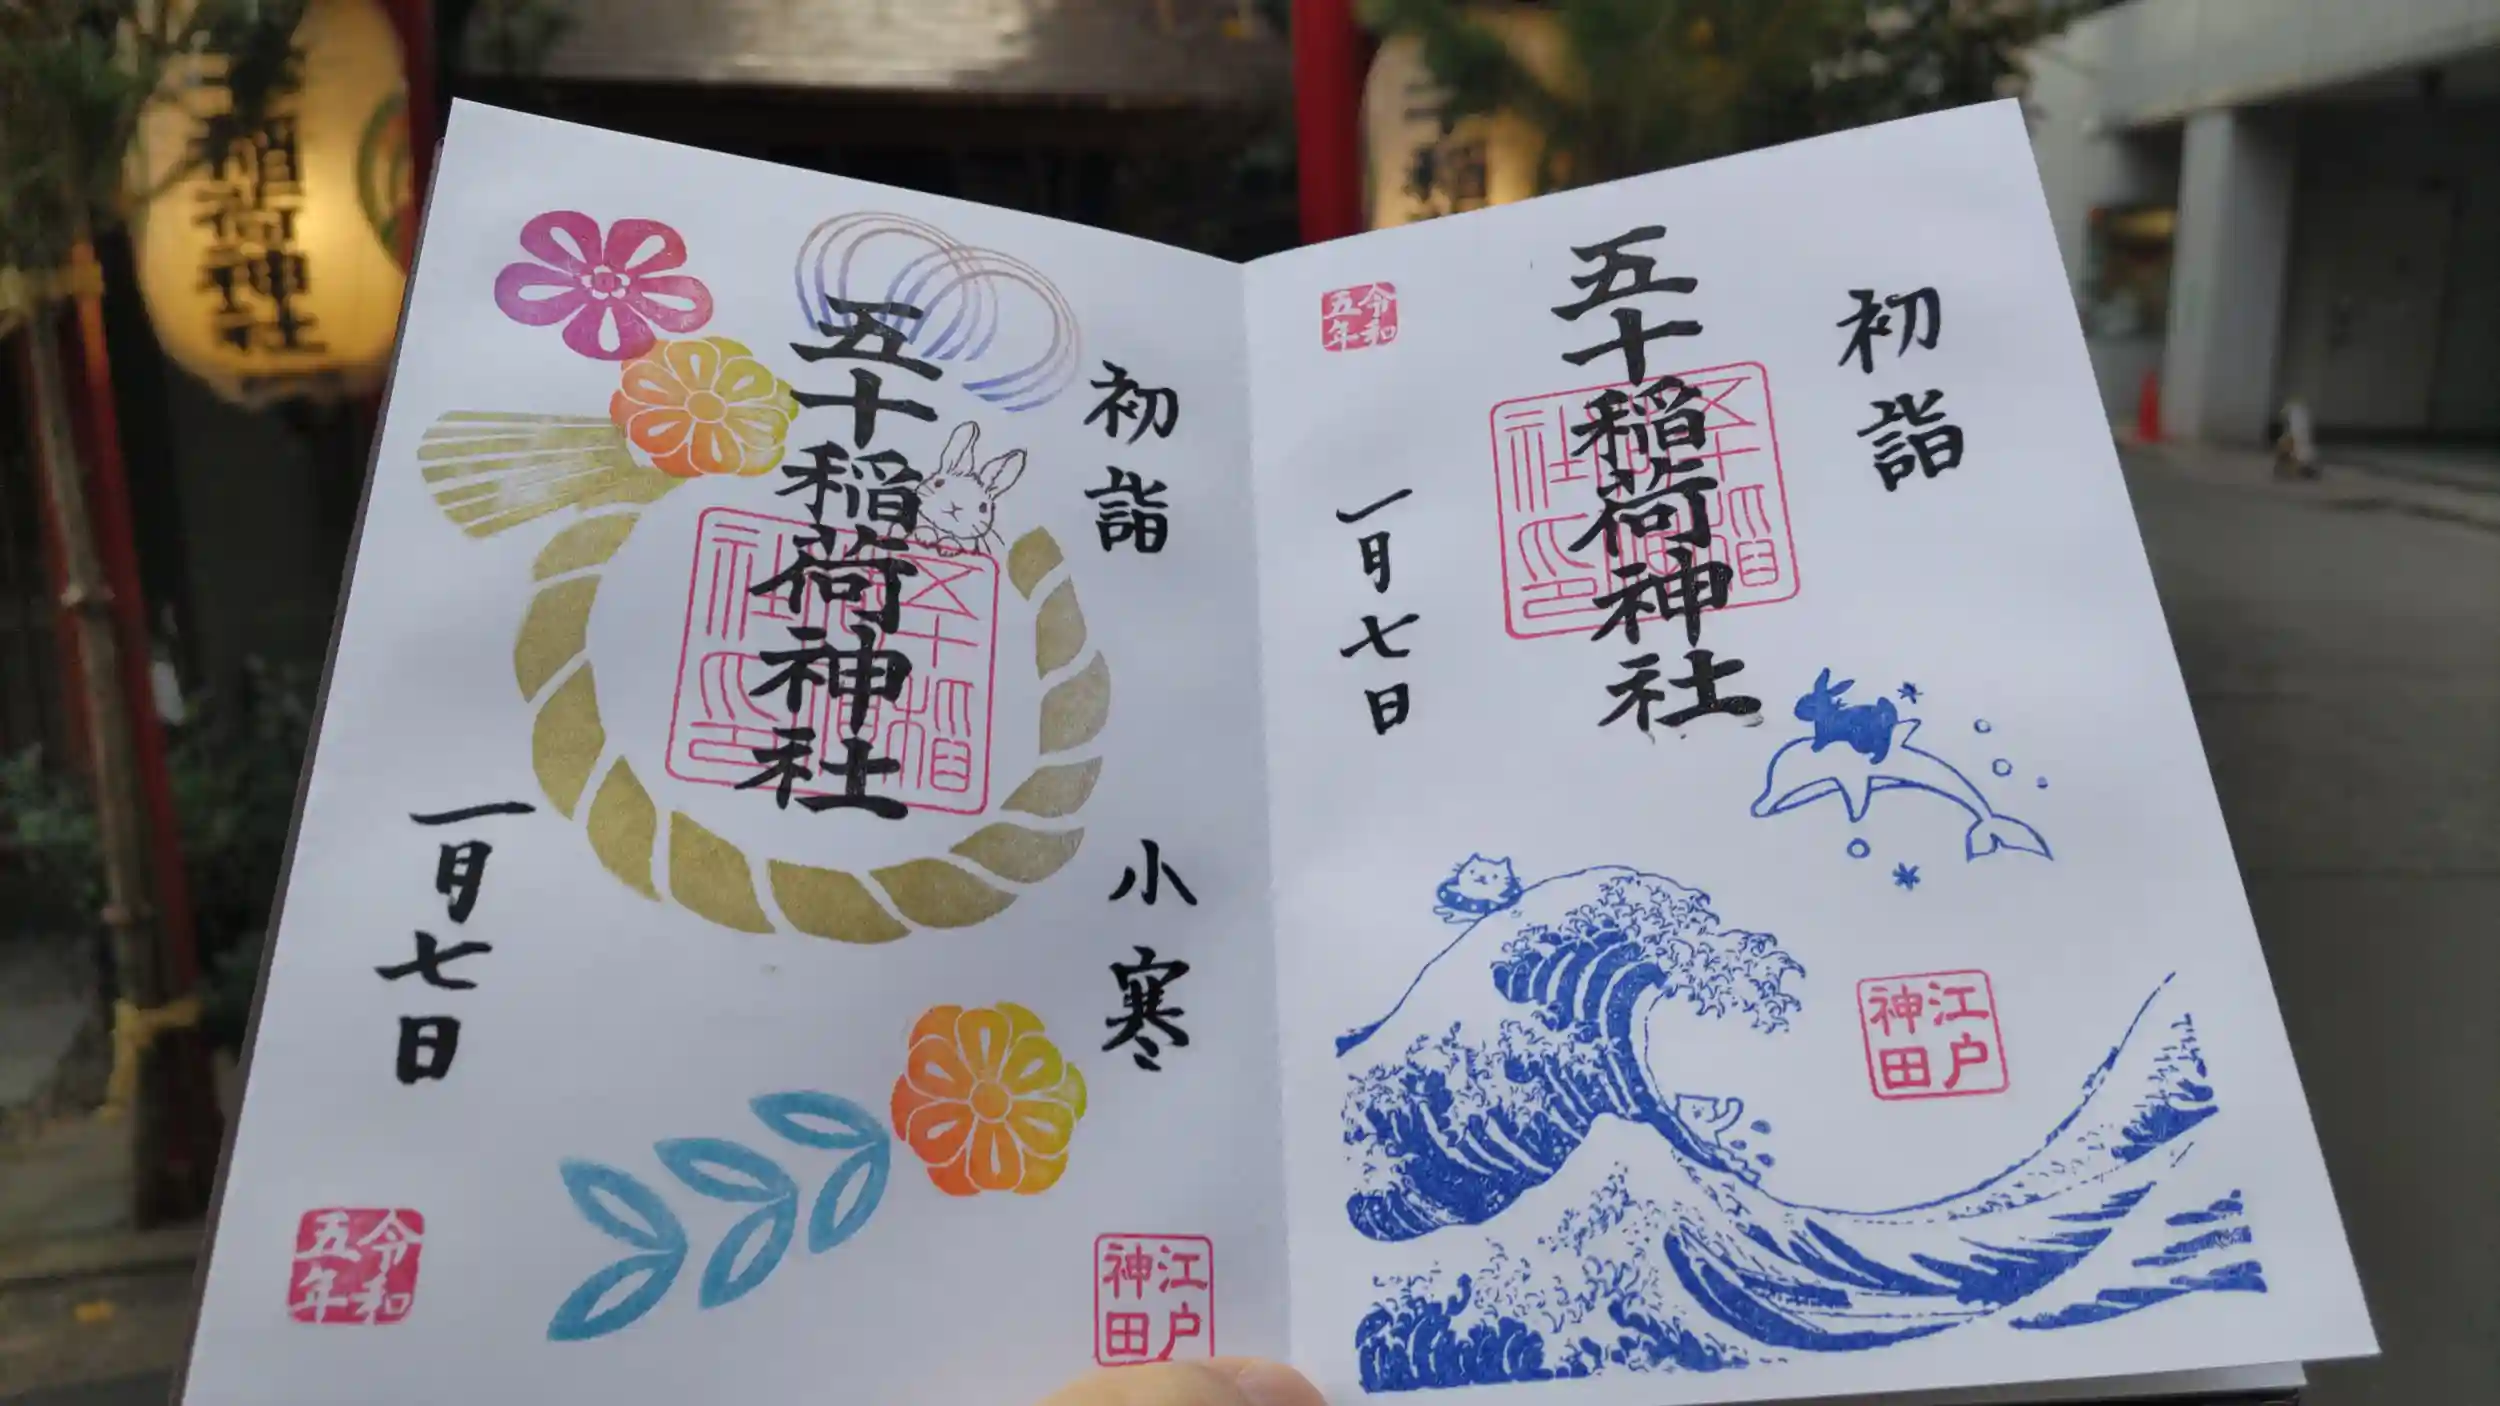 初詣
小寒
五十稲荷神社
一月七日
令和
五年
江戸
神田
初詣
五十稲荷神社
一月七日
令和
五年
江戸
神田
稲荷神社
稲